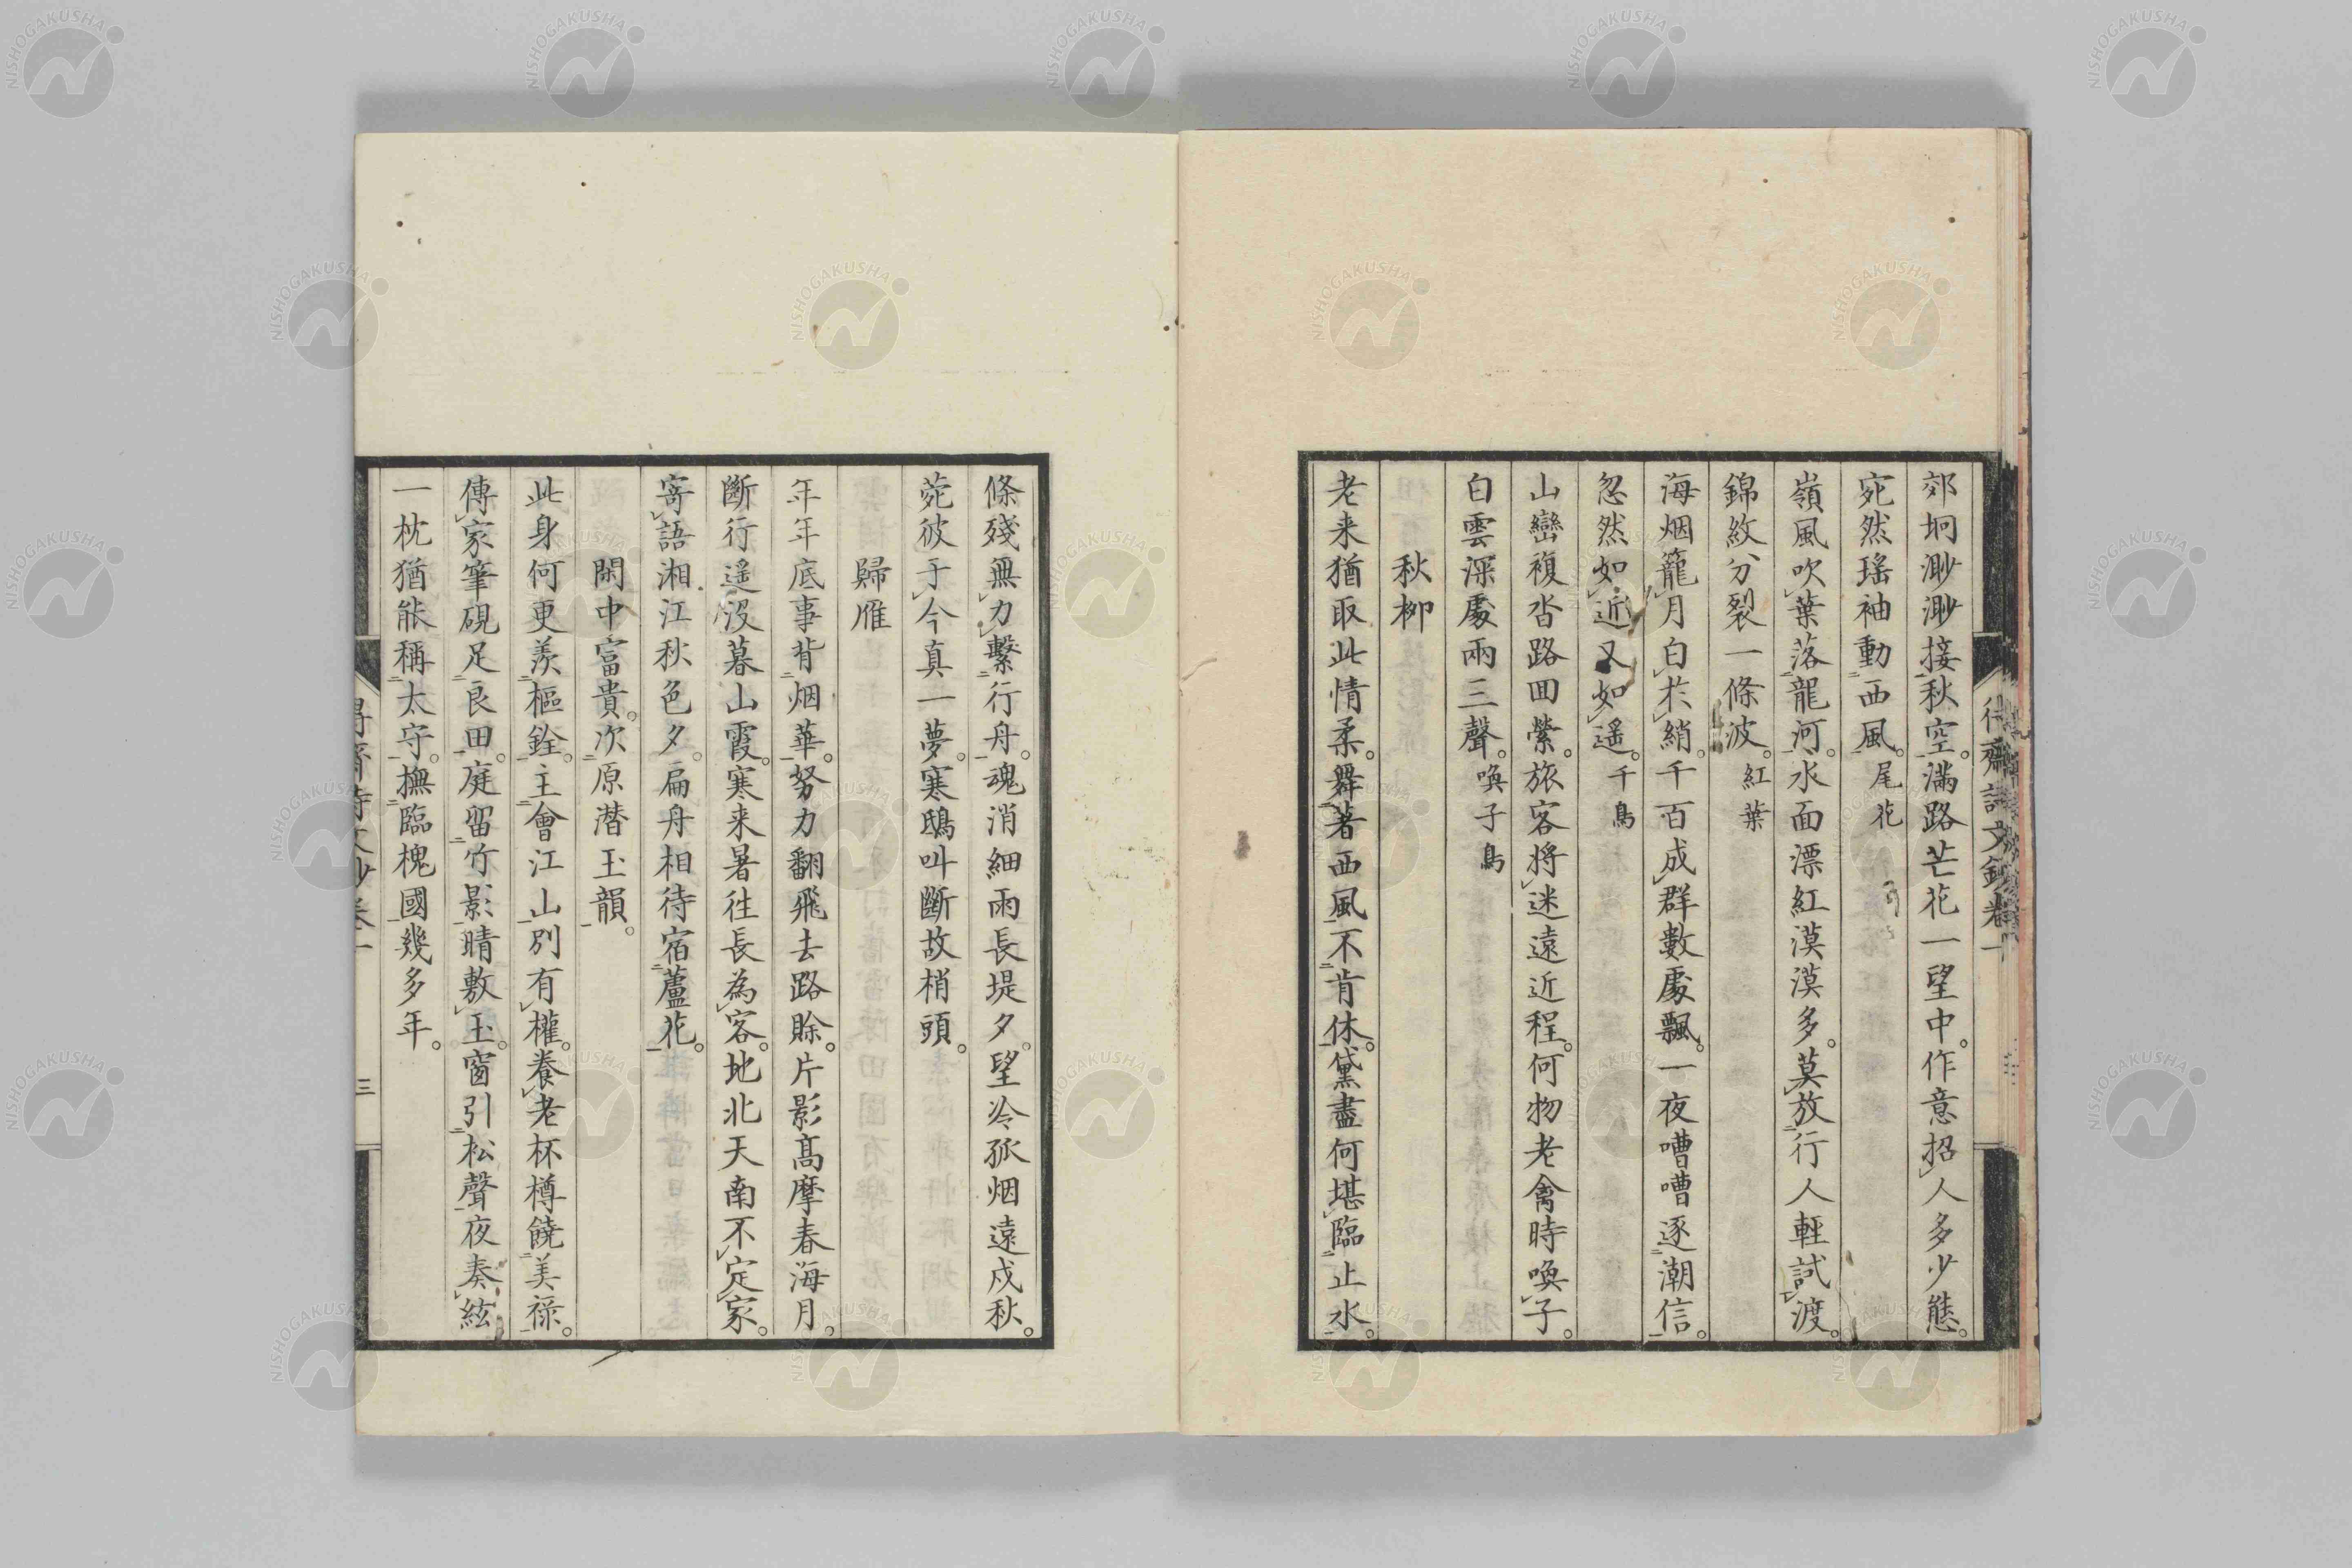 郊坰渺渺接秋空。滿路芒花一望中。作意招人多少態。
宛然瑤袖動西風。尾花
嶺風吹葉落龍河。水面漂紅漠漠多。莫放行人輕試渡。
錦紋分裂一條波。紅葉
海烟籠月白於綃。千百成群數處飄。一夜嘈嘈逐潮信。
忽然如近又如遥。千鳥
山巒複沓路囬縈。旅客将迷遠近程。何物老禽時喚子。
白雲深處兩三聲。喚子鳥
秋柳
老来猶取此情柔。舞著西風不肯休。黛盡何堪臨止水。
條殘無力繫行舟。魂消細雨長堤夕。望冷孤烟遠戍秋。
菀彼于今真一夢。寒鴟叫斷故梢頭。
歸雁
年年底事背烟華。努力翻飛去路賒。片影高摩春海月。
斷行遥沒暮山霞。寒来暑往長為客。地北天南不定家。
寄語湘江秋色夕。扁舟相待宿蘆花。
閑中富貴。次原潜玉韻。
此身何更羨樞銓。主會江山別有權。養老杯樽饒美祿。
傳家筆硯足良田。庭留竹影晴敷玉。窗引松聲夜奏絃
一枕猶能稱太守。撫臨槐國幾多年。
三
NISHOGAKUSHA